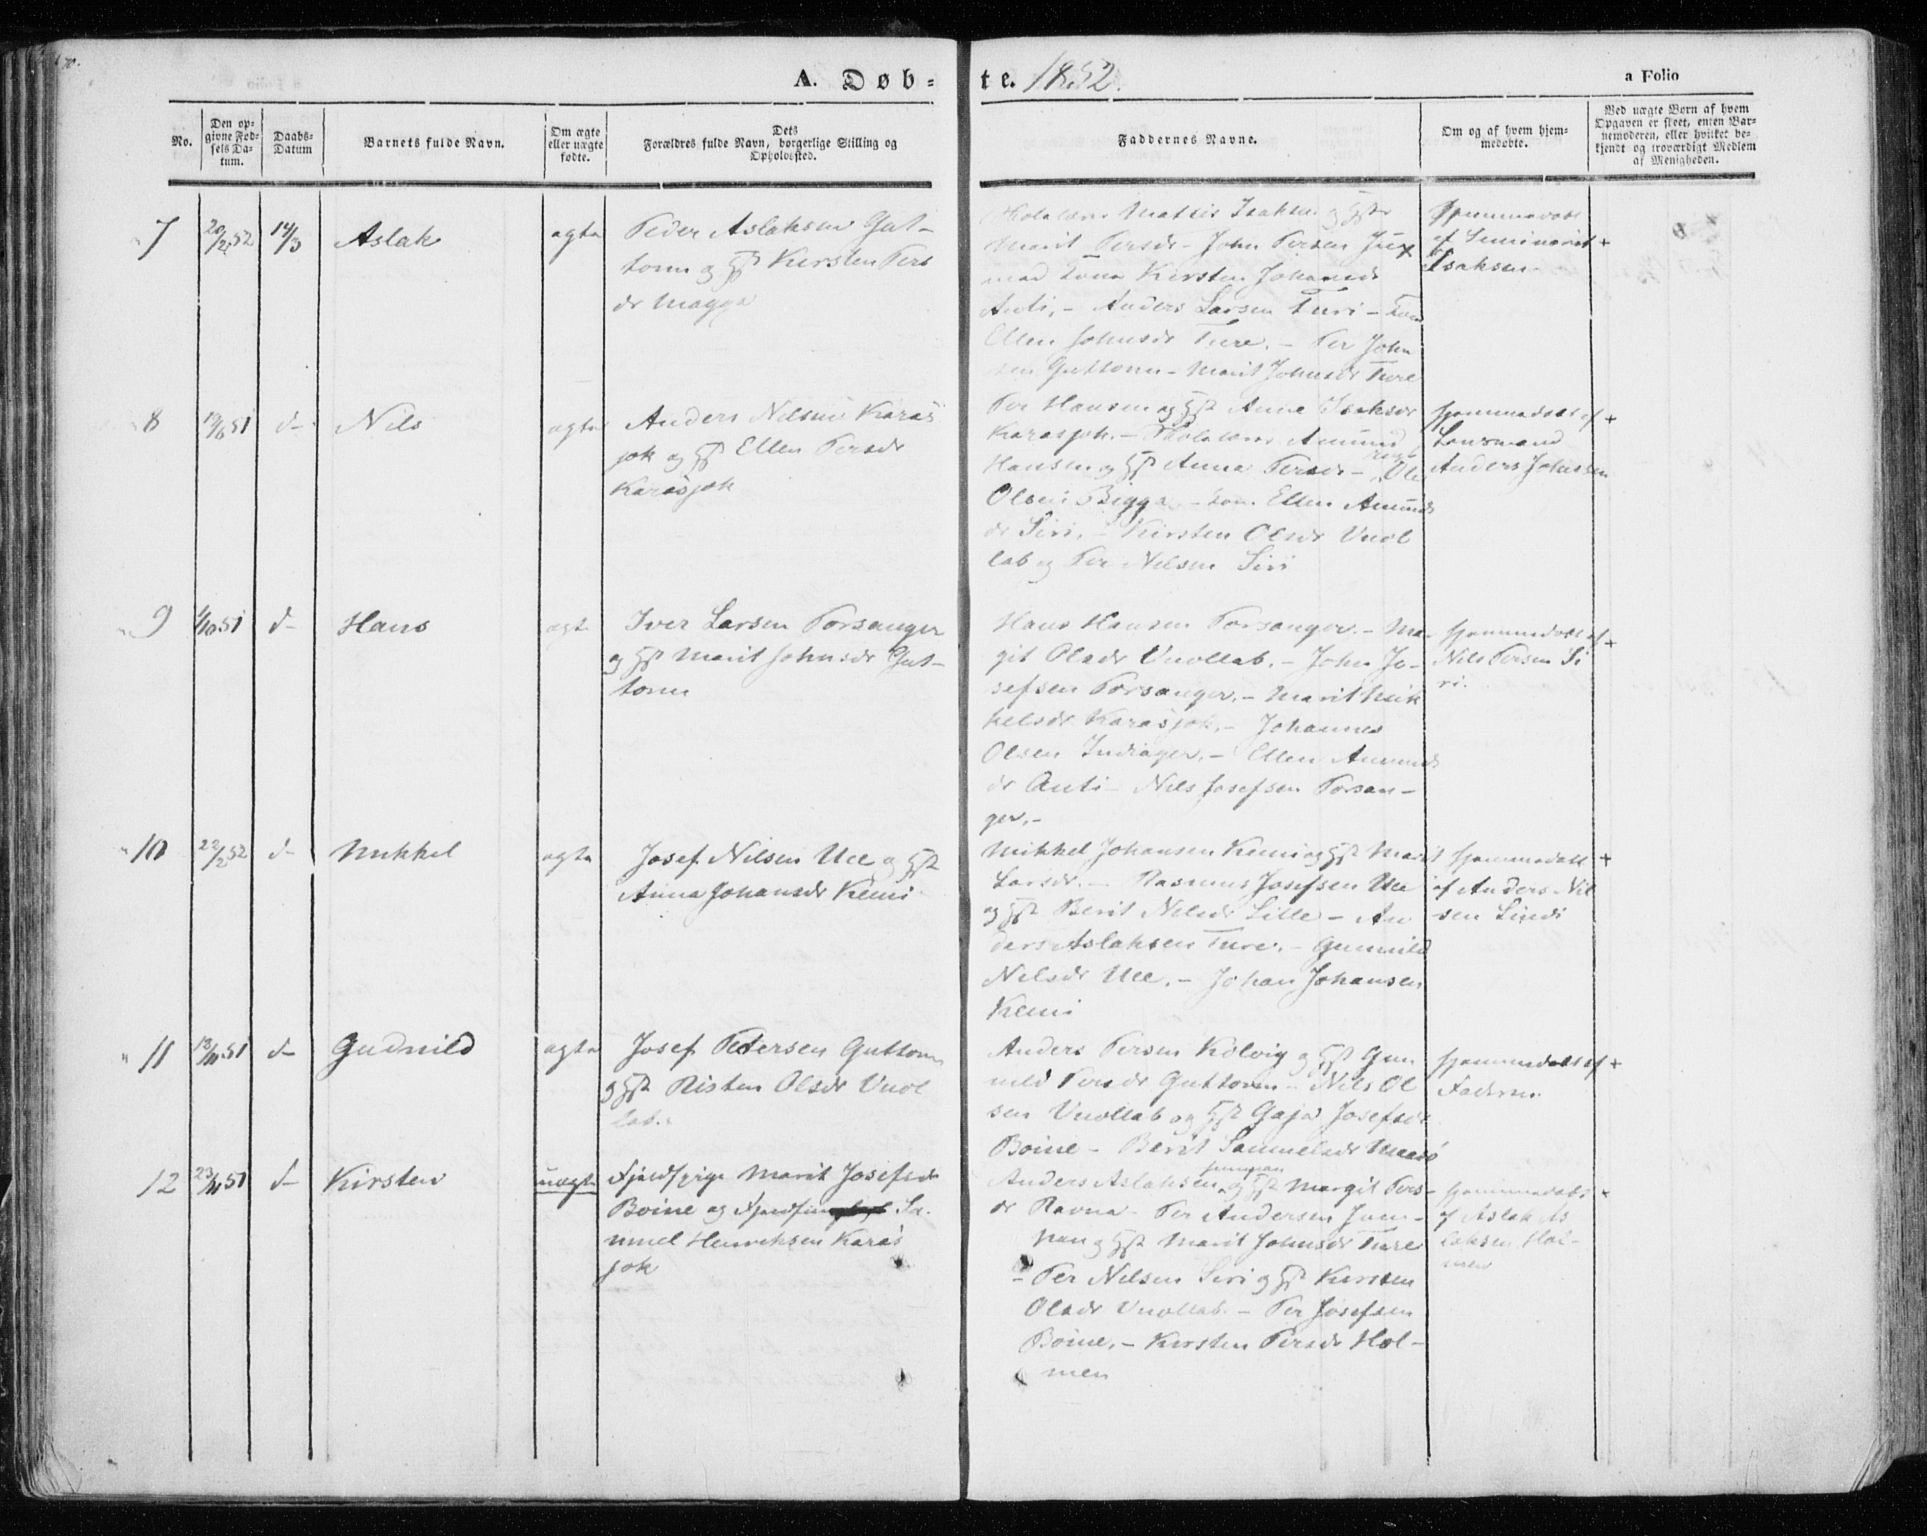 A. Døb-
te. 1852.
a Folio
No.
Den op-
givne Fød-
sels Da-
tum.
Daabs-
Datum
Barnets fulde Navn.
Om ægte
eller uægte
fødte.
Dets
Forældres fulde Navn, borgerlige Stilling og
Opholdssted.
Faddernes Navne.
Om og af hvem hjem-
medøbte.
Ved uægte Børn af hvem
Opgaven er skeet, enten Bar-
nemoderen, eller hvilket be-
kjendt og troværdigt Medlem
af Menigheden.
7
20/2 52
14/3
Aslak
ægte
Peder Aslaksen Gut-
torm og Hst Kirsten Pers
dr Magga
Skolelærer Mathis Isaksen og Hst
Marit Persdr - John Persen
Kirsten Johansdr
Anti, - Anders Larsen Turi -
Ellen Johnsdr Ture. - Per John
sen Guttorm - Marit Johnsdr Ture
Hjemmedøbt
af Seminarist +
Isaksen
8
51
d-
Nils
ægte
Anders Nilsen Karas
jok og Hst Ellen Persdr
Karasjok
Per Hansen og Hst Anne Isaksdr
Karasjok. - Skolelærer Amund
Hansen og Hst Anna Persdr - Ole
Olsen Bigga - Ellen Amunds
dr Siri, - Kirsten Olsdr Vuol
lab og Per Nilsen Siri
Hjemmedøbt af +
Lensmand
Anders Johnsen
9
1/10 51
d-
Hans
ægte
Iver Larsen Porsanger
og Hst Marit Johnsdr Gut-
torm
Hans Hansen Porsanger. - Mar-
git Olsdr Vuollab. - John Jo-
sefsen Porsanger. - Marit Mik
kelsdr Karasjok. - Johannes
Olsen Indiager. - Ellen Amunds
dr Anti - Nils Josefsen Porsan-
ger. -
Hjemmedøbt af +
Nils Persen Si
ri.
10
22/2 52
d-
Mikkel
ægte
Josef Nilsen Utse og Hst
Anna Johansdr Kemi
Mikkel Johansen Kemi og Hst Marit
Larsdr. - Rasmus Josefsen
og Hst Berit Nilsdr Lille - An
ders Aslaksen Ture. - Gunnild
Nilsdr - Johan Johansen
Kemi
Hjemmedøbt +
af Anders Nil
sen
11
13/11 51
d-
Gudnild
ægte
Josef Pedersen Guttorm
og Hst Risten Olsdr Vuol
lab.
Anders Persen Kolvig og Hst Gun
nild Persdr Guttorm - Nils Ol
sen Vuollab og Hst Gaja Josefsdr
Boine - Berit Sammelsdr
Hjemmedøbt af +
Faderen
12
23/11 51
d-
Kirsten
uægte
Fjeldpige Marit Josefsdr
Boine og Sa-
muel Henriksen Karas
jok
Anders Aslaksen og Hst Margit Pers-
dr Ravna - Per Andersen
og Hst Marit Johnsdr Ture
- Per Nilsen Siri og Hst Kirsten
Olsdr Vuollab. - Per Josefsen
Boine, - Kirsten Persdr Hol-
men
Hjemmedøbt +
af Aslak As
laksen Hol-
men